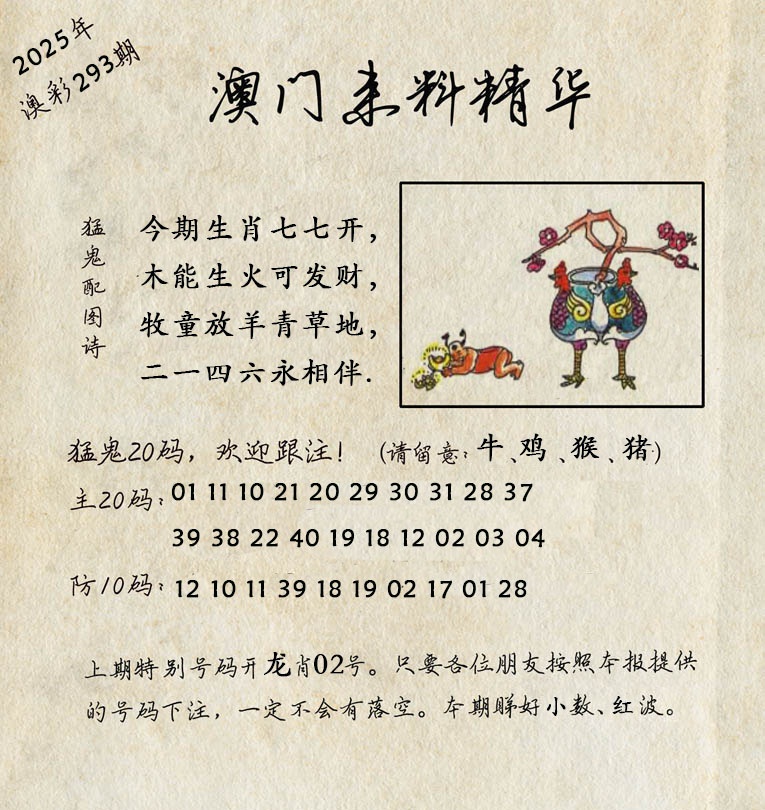 2025年
澳彩293期
澳门来料精华
猛鬼配图诗
今期生肖七七开，
木能生火可发财，
牧童放羊青草地，
二一四六永相伴.
猛鬼20码，欢迎跟注！（请留意：牛、鸡、猴、猪）
主20码：01 11 10 21 20 29 30 31 28 37
39 38 22 40 19 18 12 02 03 04
防10码：12 10 11 39 18 19 02 17 01 28
上期特别号码开龙肖02号。只要各位朋友按照本报提供
的号码下注，一定不会有落空。本期睇好小数、红波。